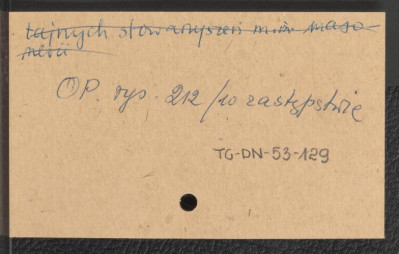 tajnych stowarzyszeń m.in maso-
nerii
OP. rys. 212 /w zastępstwie
TG-DN-53-129